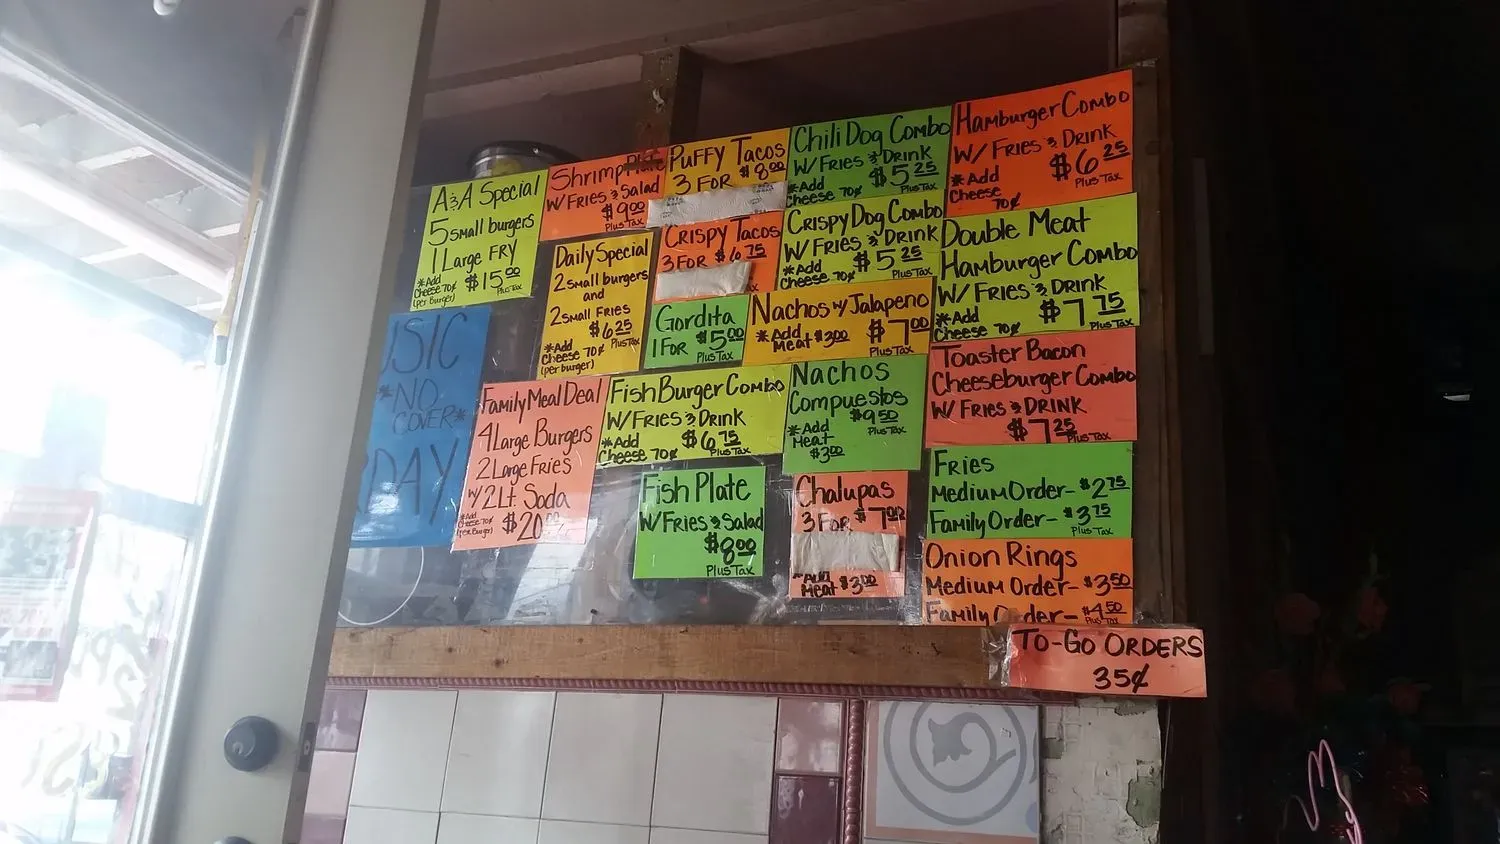 A&A Special
5 small burgers
1 Large FRY
*Add
Cheese 70¢
(per Burger)
$15.00
Shrimp Plate
W/ Fries & Salad
$9.00
Plus Tax
Puffy Tacos
3 FOR $8.00
Chili Dog Combo
W/ Fries & Drink
*Add
Cheese 70¢
$5.25
Plus Tax
Hamburger Combo
W/ Fries & Drink
*Add
Cheese
70¢
$6.25
Plus Tax
Daily Special
2 small burgers
and
2 small Fries
$6.25
Plus Tax
*Add
Cheese 70¢
(per burger)
Crispy Tacos
3 FOR $6.75
Crispy Dog Combo
W/ Fries & Drink
*Add
Cheese 70¢
$5.25
Plus Tax
Double Meat
Hamburger Combo
W/ Fries & Drink
*Add
Cheese 70¢
$7.75
Plus Tax
Gordita
1 FOR $5.00
Plus Tax
Nachos w/ Jalapeno
*Add
Meat $3.00
$7.00
Plus Tax
USIC
*NO
COVER*
DAY
Family Meal Deal
4 Large Burgers
2 Large Fries
w/ 2 Lt. Soda
*Add
Cheese 70¢
(per Burger)
$20.00
Fish Burger Combo
W/ Fries & Drink
*Add
Cheese 70¢
$6.75
Plus Tax
Nachos
Compuestos
$9.50
Plus Tax
*Add
Meat
$3.00
Toaster Bacon
Cheeseburger Combo
W/ Fries & DRINK
$7.25
Plus Tax
Fish Plate
W/ Fries & Salad
$8.00
Plus Tax
Chalupas
3 FOR $7.00
*Add
Meat $3.00
Fries
Medium Order- $2.75
Family Order- $3.75
Plus Tax
Onion Rings
Medium Order- $3.50
Family Order- $4.50
Plus Tax
To-Go Orders
35¢